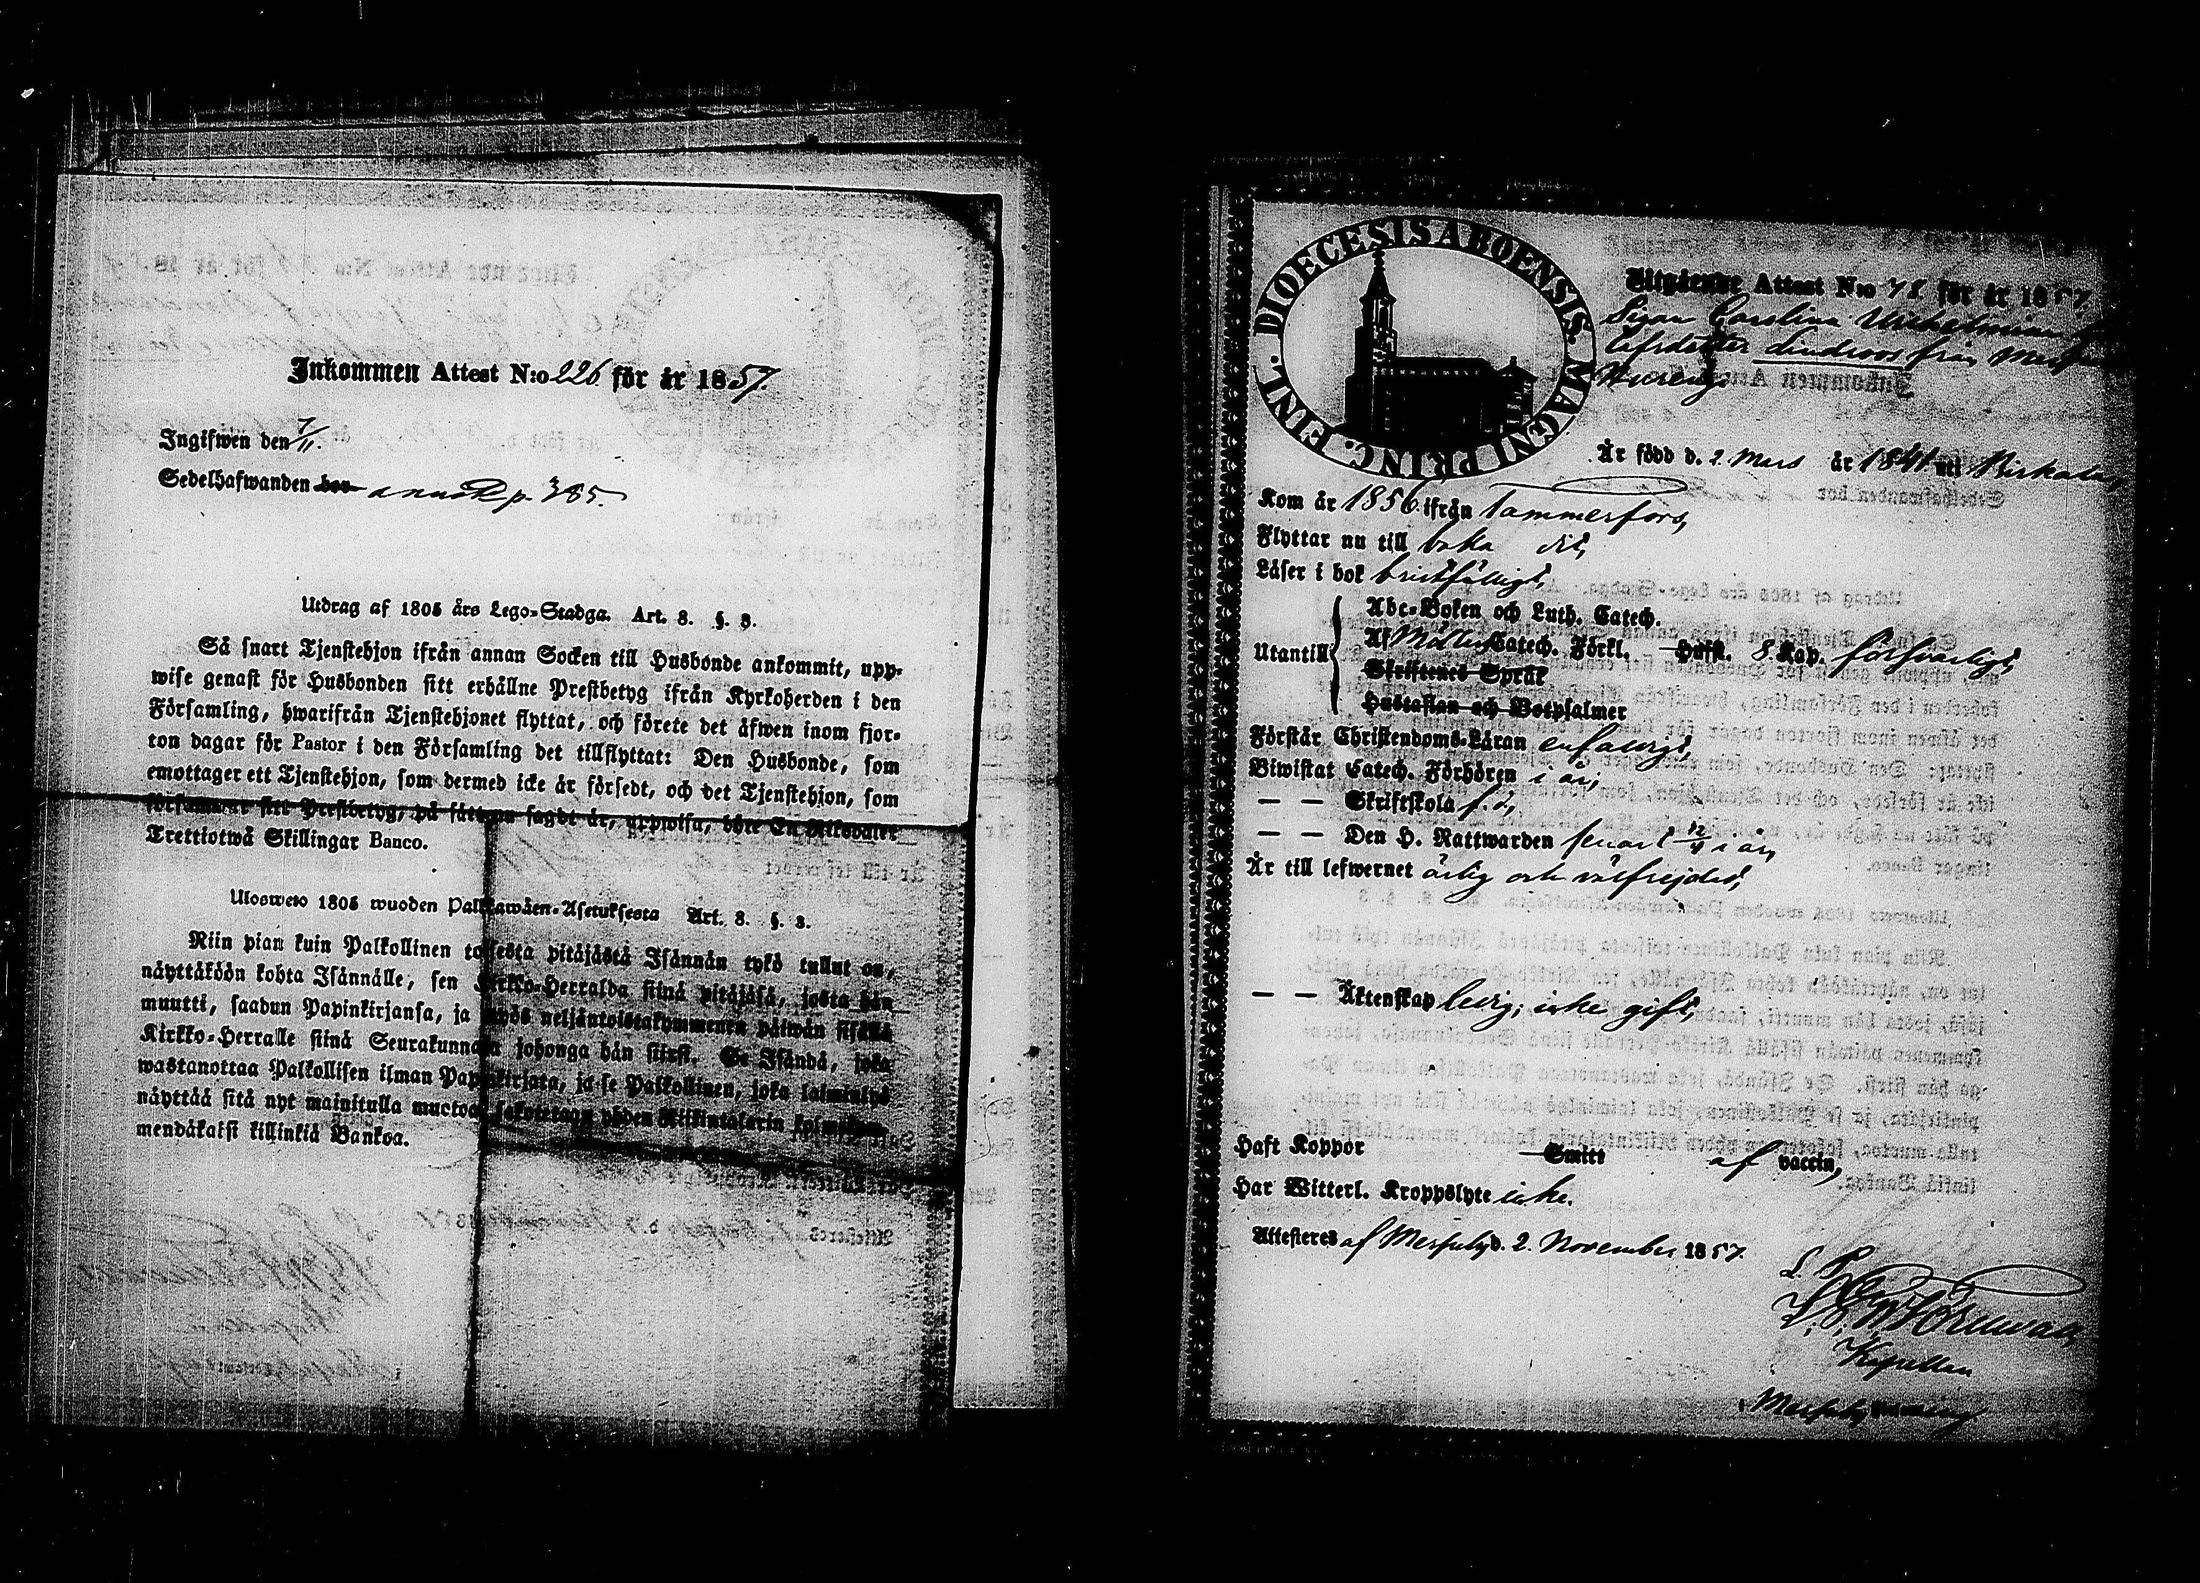 Inkommen Attest N:o 226 för år 1857.
Ingifwen den 7/11.
Sedelhafwanden bor annst p. 385.
Utdrag af 1805 års Lego-Stadga. Art. 8. §. 3.
Så snart Tjenstehjon ifrån annan Socken till Husbonde ankommit, upp-
wise genast för Husbonden sitt erhållne Prestbetyg ifrån Kyrkoherden i den
Församling, hwarifrån Tjenstehjonet flyttat, och förete det äfwen inom fjor-
ton dagar för Pastor i den Församling det tillflyttat: Den Husbonde, som
emottager ett Tjenstehjon, som dermed icke är försedt, och det Tjenstehjon, som
försummar sitt Prestbetyg, på sätt nu sagdt är, uppwisa, böte En Riksdaler
Trettiotwå Skillingar Banco.
Ulosweto 1805 wuoden Palkkawäen-Asetuksesta Art. 8. §. 3.
Niin pian kuin Palkollinen toisesta pitäjästä Isännän tykö tullut on,
näyttäköön kohta Isännälle, sen Kirkko-Herralda siinä pitäjäsä, josta hän
muutti, saadun Papinkirjansa, ja myös neljäntoistakymmenen päiwän sisällä
Kirkko-Herralle siinä Seurakunnasa johonga hän siirsi. Se Isändä, joka
wastanottaa Palkollisen ilman Papinkirjata, ja se Palkollinen, joka laiminlyö
näyttää sitä nyt mainitulla muotoa, sakotetaan yhden Riikintalarin kolmekym-
mendäkaksi killinkiä Bankoa.
DIOECESIS ABOENSIS. MAGNI PRINC. FINL.
Utgående Attest N:o 71 för år 1857
Carolina Wilhelmina
dotter Lindroos från
Är född d. 2 Mars år 1841 uti Birkala,
Kom år 1856 ifrån Tammerfors,
Flyttar nu till baka dit,
Läser i bok bristfälligt,
Utantill
Abc-Boken och Luth. Catech.
Af Möllers Catech. Förkl. Hufst. 8. Kap. försvarligt,
Skriftenes Språk
Hustaflan och Botpsalmer
Förstår Christendoms-Läran enfaldigt,
Biwistat Catech. Förhören i år,
— — Skriftskola f. d,
— — Den H. Nattwarden senast 12/4 i år,
Är till lefwernet ärlig och välfrejdad,
— — Äktenskap ledig; icke gift,
Haft Koppor Smitt af vaccin,
Har Witterl. Kroppslyte icke.
Attesteras af Messuby d. 2. November 1857.
L. S.
Kapellan
i Messuby